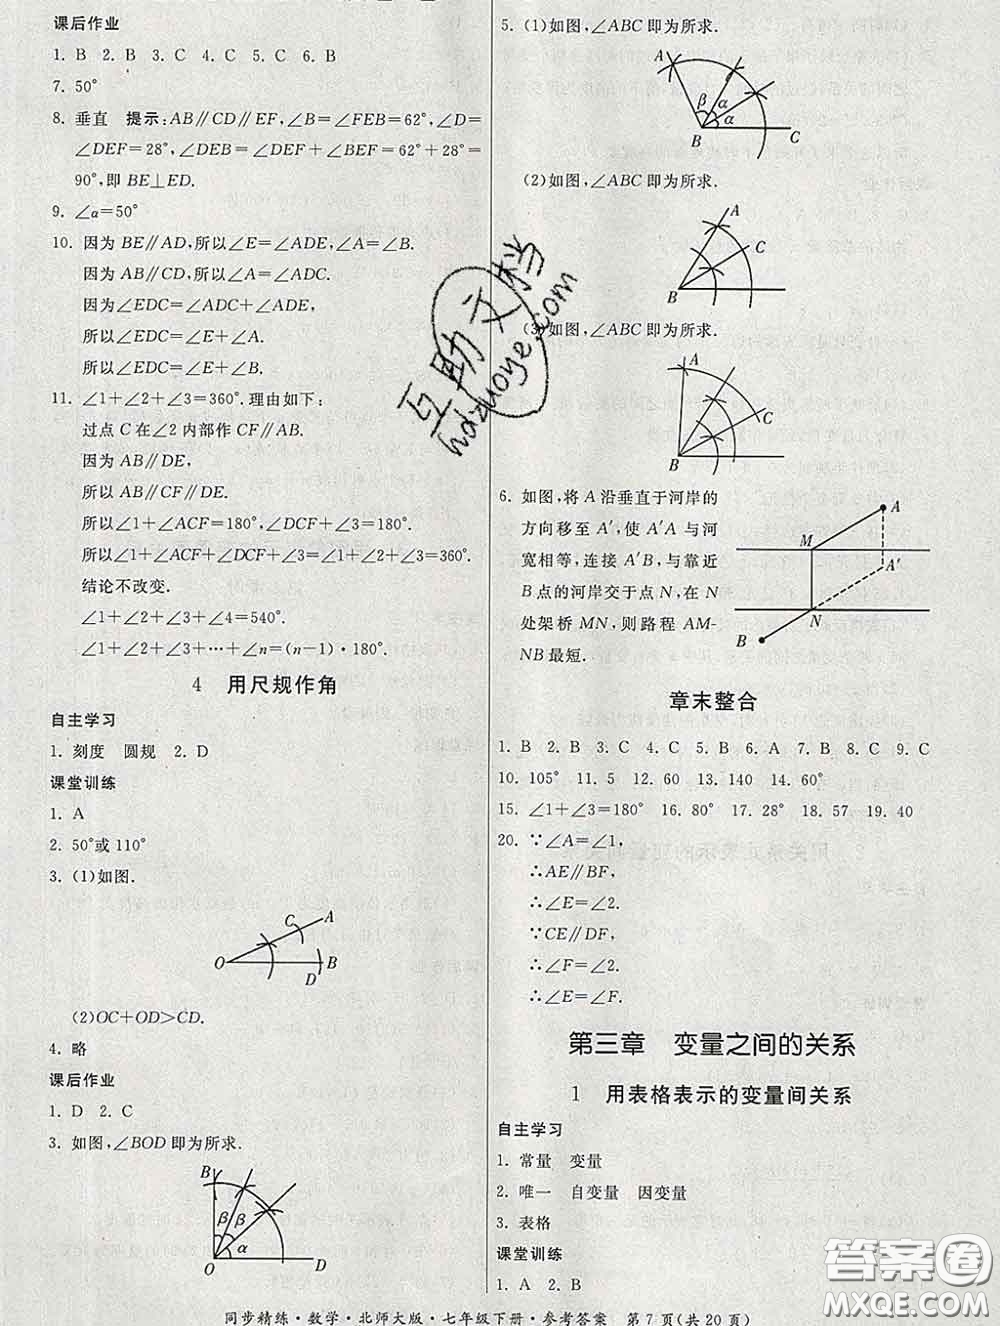 课后作业
1. B  2. B  3. C  4. C  5. C  6. B
7. 50°
8. 垂直  提示:AB∥CD∥EF,∠B=∠FEB=62°,∠D=
∠DEF=28°,∠DEB=∠DEF+∠BEF=62°+28°=
90°,即 BE⊥ED.
9. ∠α=50°
10. 因为 BE∥AD,所以∠E=∠ADE,∠A=∠B.
因为 AB∥CD,所以∠A=∠ADC.
因为∠EDC=∠ADC+∠ADE,
所以∠EDC=∠E+∠A.
所以∠EDC=∠E+∠B.
11. ∠1+∠2+∠3=360°.理由如下:
过点 C 在∠2 内部作 CF∥AB.
因为 AB∥DE,
所以 AB∥CF∥DE.
所以∠1+∠ACF=180°,∠DCF+∠3=180°.
所以∠1+∠ACF+∠DCF+∠3=∠1+∠2+∠3=360°.
结论不改变.
∠1+∠2+∠3+∠4=540°.
∠1+∠2+∠3+⋯+∠n=(n-1)·180°.
4  用尺规作角
自主学习
1. 刻度  圆规  2. D
课堂训练
1. A
2. 50°或 110°
3. (1)如图.
C A
O D B
(2)OC+OD>CD.
4. 略
课后作业
1. D  2. C
3. 如图,∠BOD 即为所求.
B
β β
α
O D
5. (1)如图,∠ABC 即为所求.
A
β α
α
B C
(2)如图,∠ABC 即为所求.
A
C
B
(3)如图,∠ABC 即为所求.
A
C
B
6. 如图,将 A 沿垂直于河岸的
方向移至 A′,使 A′A 与河
宽相等,连接 A′B,与靠近
B 点的河岸交于点 N,在 N
处架桥 MN,则路程 AM-
NB 最短.
A
M
A′
N
B
章末整合
1. B  2. B  3. C  4. C  5. B  6. A  7. B  8. C  9. C
10. 105°  11. 5  12. 60  13. 140  14. 60°
15. ∠1+∠3=180°  16. 80°  17. 28°  18. 57  19. 40
20. ∵∠A=∠1,
∴AE∥BF,
∴∠E=∠2.
∵CE∥DF,
∴∠F=∠2.
∴∠E=∠F.
第三章  变量之间的关系
1  用表格表示的变量间关系
自主学习
1. 常量  变量
2. 唯一  自变量  因变量
3. 表格
课堂训练
1. A  2. B
同步精练·数学·北师大版·七年级下册·参考答案  第 7 页(共 20 页)
互助文档
hdzuoye.com
答案圈
MXQE.COM